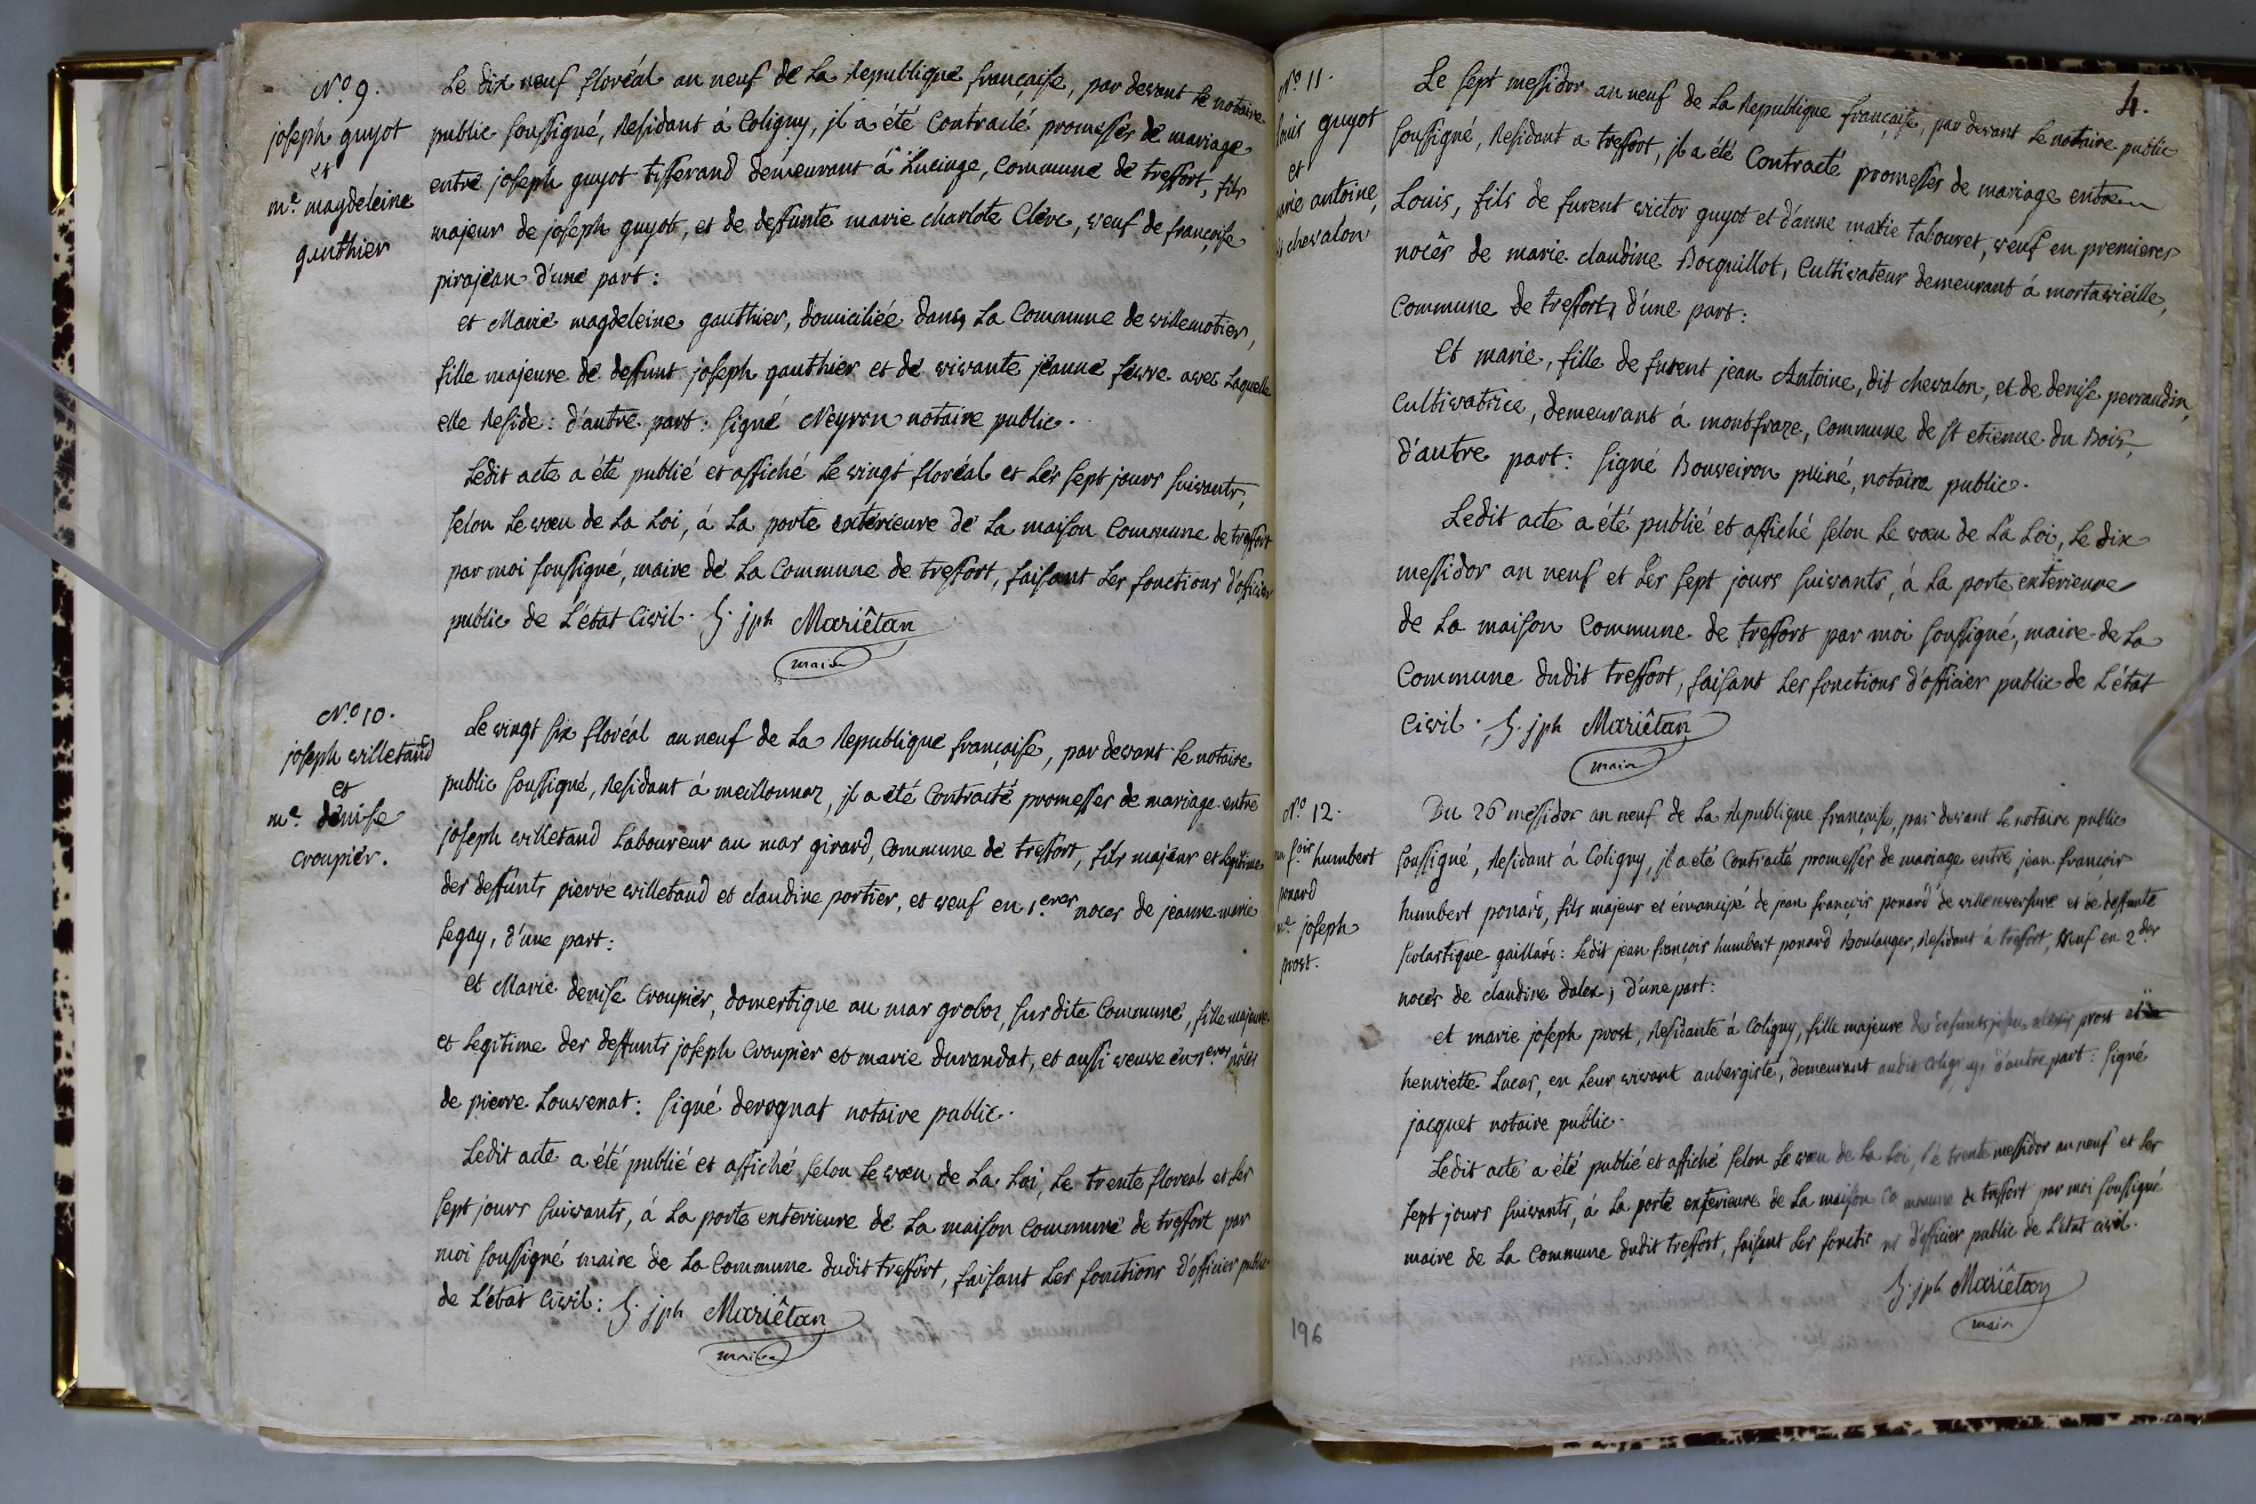 N.o 9.
joseph guyot
et
m.e magdeleine
gauthier
Le dix neuf floréal an neuf de la Republique française, par devant le notaire
public soussigné, Residant à Coligny, il a été Contracté promesses de mariage
entre joseph guyot tisserand demeurant à Lucinge, Commune de treffort, fils
majeur de joseph guyot, et de deffunte marie charlote Clerc, veuf de françoise
pirajean d'une part:
et Marie magdeleine gauthier, domiciliée dans la Commune de villemotier,
fille majeure de deffunt joseph gauthier et de vivante jeanne fèvre avec Laquelle
elle Reside: d'autre part: signé Neyron notaire public.
Ledit acte a été publié et affiché le vingt floréal et les sept jours suivants,
selon le vœu de la Loi, à la porte exterieure de la maison Commune de treffort
par moi soussigné, maire de la Commune de treffort, faisant les fonctions d'officier
public de L'état Civil. jph Mariêtan
maire
N.o 10.
joseph villetand
et
m.e denise
croupier.
Le vingt six floréal an neuf de la Republique française, par devant le notaire
public soussigné, Residant à meillonnaz, il a été Contracté promesses de mariage entre
joseph villetand Laboureur au mas girard, Commune de treffort, fils majeur et legitime
des deffunts pierre villetand et claudine portier, et veuf en 1.eres noces de jeanne marie
segay, d'une part:
et Marie denise Croupier, domestique au mas groboz, susdite Commune, fille majeure
et Legitime des deffunts joseph Croupier et marie durandat, et aussi veuve en 1.eres nôces
de pierre Louvenat: signé derognat notaire public.
Ledit acte a été publié et affiché selon le vœu de la Loi, le trente floreal et les
sept jours suivants, à la porte exterieure de la maison commune de treffort par
moi soussigné maire de la Commune dudit treffort, faisant les fonctions d'officier public
de L'état Civil: jph Mariêtan
maire
4.
N.o 11.
louis guyot
et
marie antoine,
chevalon
Le sept messidor an neuf de la Republique française, par devant le notaire public
soussigné, Residant a treffort, il a été Contracté promesses de mariage entre
Louis, fils de furent victor guyot et d'anne marie tabouret, veuf en premieres
nocês de marie claudine Bocquillot, Cultivateur demeurant à mortavieille,
Commune de treffort, d'une part:
Et marie, fille de furent jean Antoine, dit chevalon, et de denise perraudin,
Cultivatrice, demeurant à montfraze, Commune de st etienne du Bois,
d'autre part: signé Bouveiron puiné, notaire public.
Ledit acte a été publié et affiché selon le vœu de la Loi, le dix
messidor an neuf et les sept jours suivants, à la porte exterieure
de la maison Commune de treffort par moi soussigné, maire de la
Commune dudit treffort, faisant les fonctions d'officier public de L'état
Civil. jph Mariêtan
maire
N.o 12.
f.ois humbert
ponard
m.e joseph
prost.
Du 26 messidor an neuf de la Republique française, par devant le notaire public
soussigné, Residant à Coligny, il a eté Contracté promesses de mariage entre jean françois
humbert ponard, fils majeur et émancipé de jean françois ponard de villereversure et de deffunte
scolastique gaillard: Ledit jean françois humbert ponard Boulanger, Residant à treffort, veuf en 2.des
nocês de claudine dalex; d'une part:
et marie joseph prost, Residante à Coligny, fille majeure des defunts prost et
henriette Lucas, en Leur vivant aubergiste, demeurant audit Coligny, d'autre part: signé
jacquet notaire public.
Ledit acte a été publié et affiché selon le vœu de la Loi, le trente messidor an neuf et les
sept jours suivants, à la porte exterieure de la maison commune de treffort par moi soussigné
maire de la Commune dudit treffort, faisant les fonctions d'officier public de L'état civil.
jph Mariêtan
maire
196